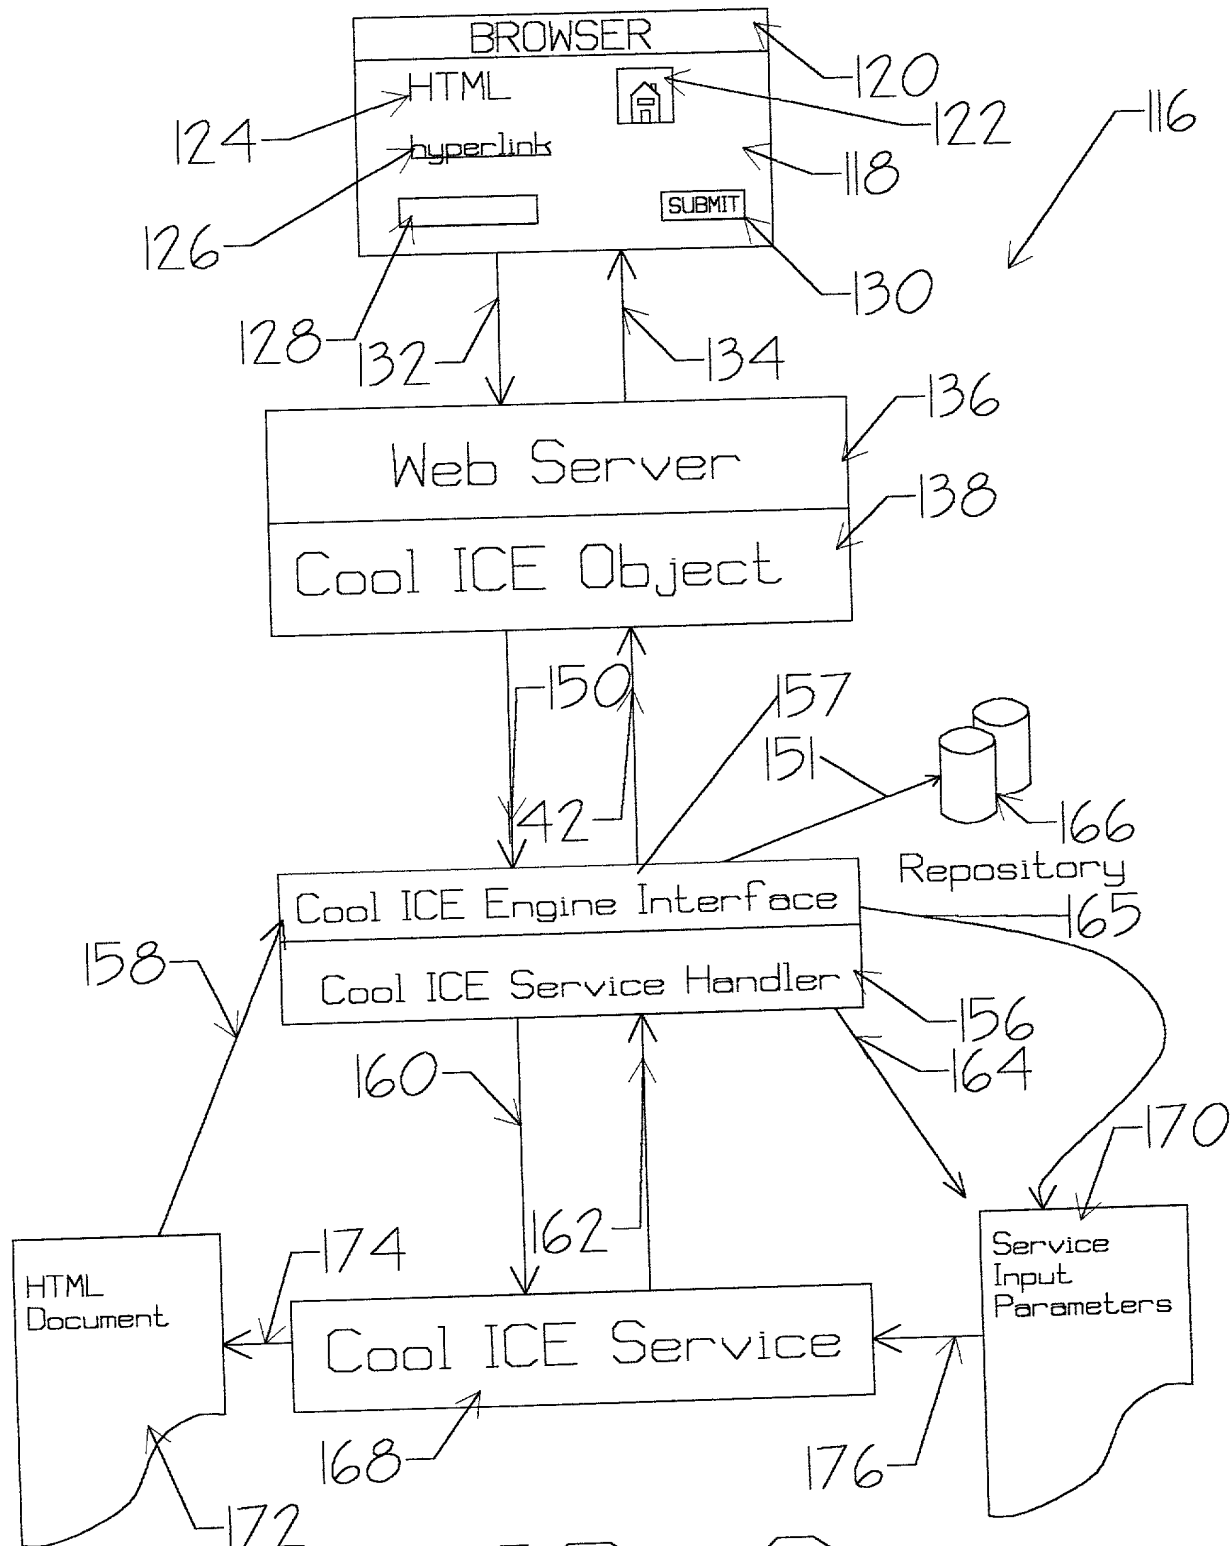 BROWSER
HTML
hyperlink
SUBMIT
120
122
116
124
118
126
130
128
132
134
Web Server
136
Cool ICE Object
138
150
157
151
42
166
Repository
Cool ICE Engine Interface
165
158
Cool ICE Service Handler
156
160
164
170
162
174
HTML
Document
Service
Input
Parameters
Cool ICE Service
168
176
172